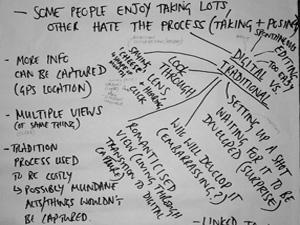 — SOME PEOPLE ENJOY TAKING LOTS,
OTHER HATE THE PROCESS (TAKING + POSING
SPONTANEOUS
EDITING
TOO EASY
DIGITAL
VS
TRADITIONAL
- MORE INFO
CAN BE CAPTURED
(GPS LOCATION)
- MULTIPLE VIEWS
(OF SAME THING)
- TRADITION
PROCESS USED
TO BE COSTLY
↳ POSSIBLY MUNDANE
ACTS/THINGS WOULDN'T
BE CAPTURED.
SAYING
CHEESE
LOOK
THROUGH
LENS
HEARING
CLICK
SETTING UP A SHOT
WAITING FOR IT TO BE
DEVELOPED (SURPRISE)
WHO WILL DEVELOP IT
(EMBARRASSING?)
ROMANTICISED
VIEW (LIVING THROUGH
TRANSITION TO DIGITAL
- LINKED TO